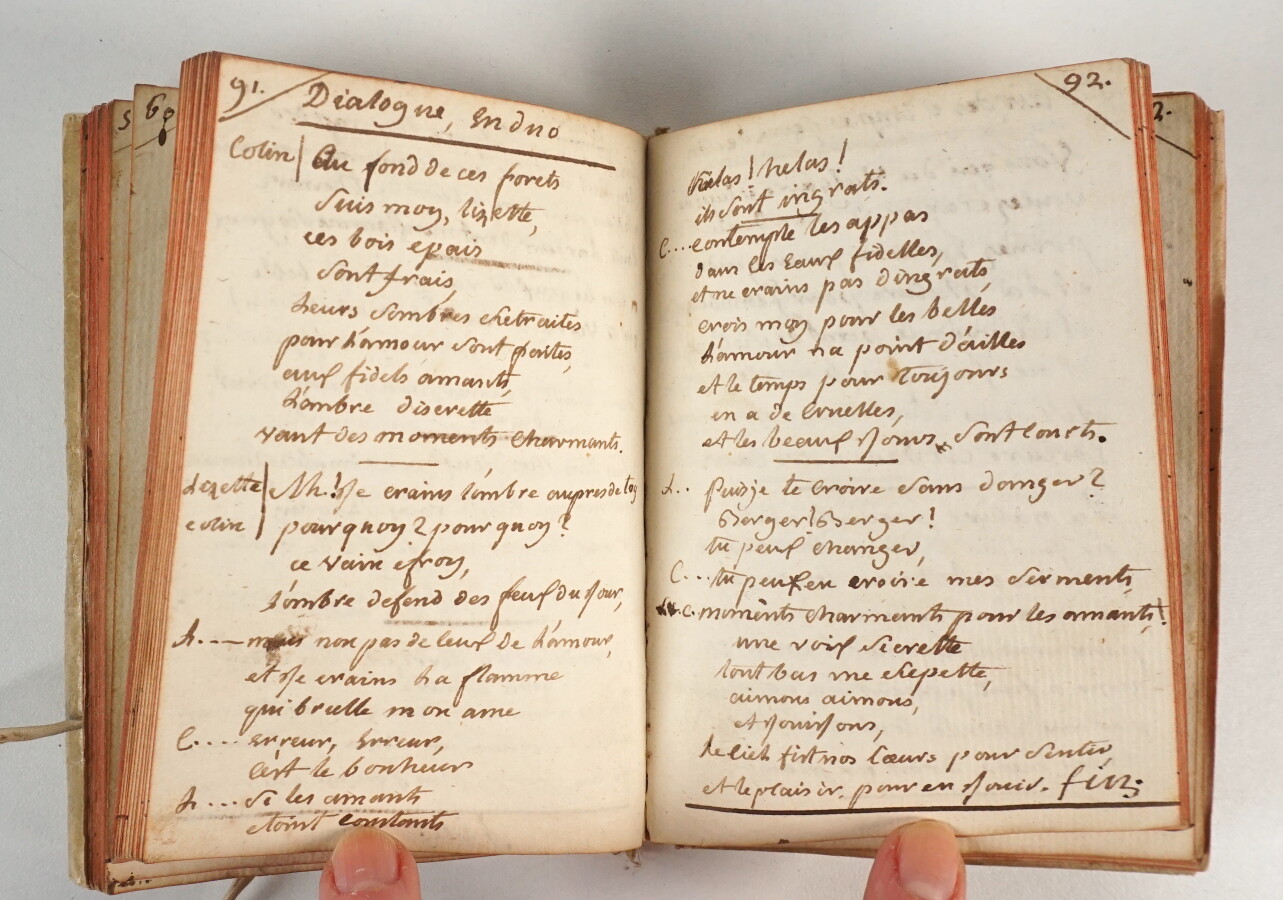 91.
Dialogue, En duo
Colin | Au fond de ces forets
suis moy, lizette,
ces bois epais
sont frais,
Leurs sombres retraites
pour L'amour sont faites,
aux fidels amants,
L'ombre discrette
vaut des moments Charmants.
Lizette | Ah! Je crains l'ombre aupres de toy
colin | pourquoy? pourquoy?
ce vain efroy,
L'ombre defend des feux du Jour,
L.... mais non pas de ceux de L'amour,
et Je crains La flamme
qui brulle mon ame
C.... Erreur, Erreur,
C'est le bonheur
L.... si les amants
etoint constants
92.
helas! helas!
ils sont ingrats.
C.... contemple tes appas
dans les Eaux fidelles,
et ne crains pas d'ingrats,
crois moy pour les belles
L'amour n'a point d'ailles
et le temps pour Toujours
en a de Cruelles,
et les beaux Jours, sont Courts.
L.. Puisje te Croire sans danger?
Berger! Berger!
tu peux changer,
C... tu peux en croire mes serments,
L.. C. moments charmants pour les amants!
une voix secrette
tout bas me repette,
aimons aimons,
et Jouissons,
le Ciel fit nos Coeurs pour sentir,
et le plaisir. pour en Jouir. fin;
2.